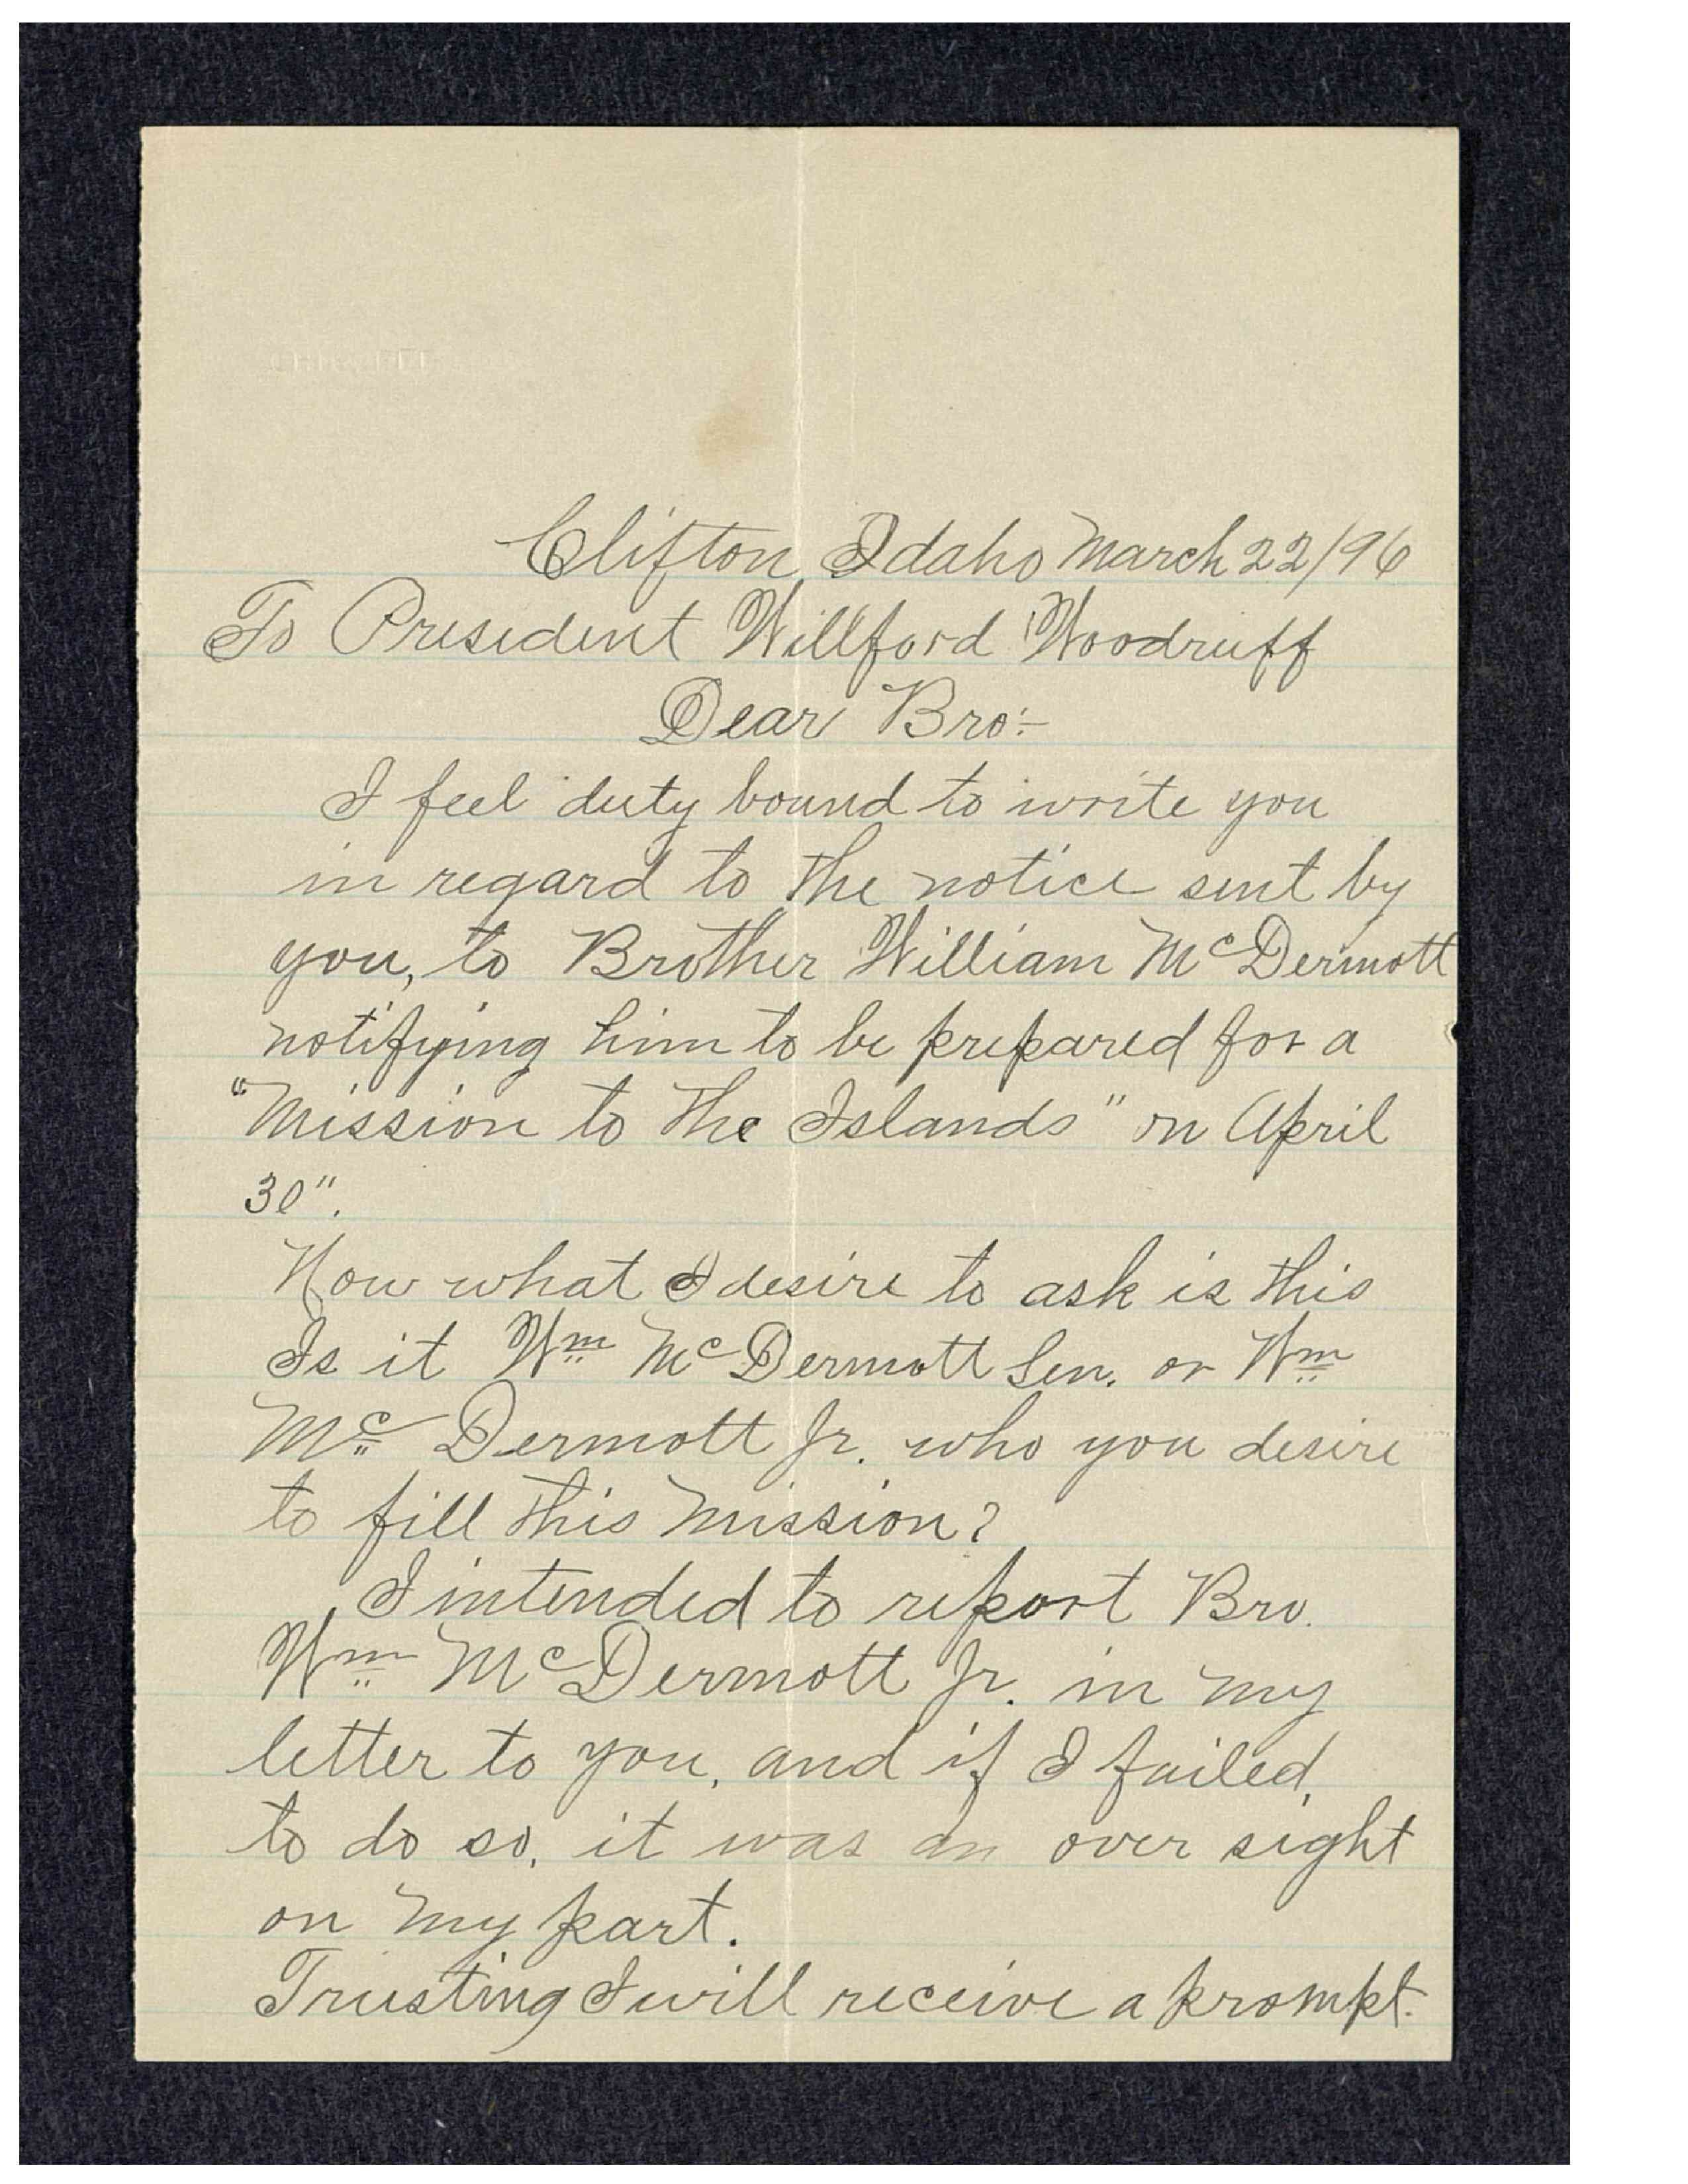 Clifton Idaho March 22/96
To President Willford Woodruff
Dear Bro:-
I feel duty bound to write you
in regard to the notice sent by
you, to Brother William McDermott
notifying him to be prepared for a
"Mission to the Islands" on April
30".
Now what I desire to ask is this
Is it Wm McDermott Sen. or Wm
McDermott Jr. who you desire
to fill this mission?
I intended to report Bro.
Wm McDermott Jr. in my
letter to you, and if I failed,
to do so, it was an over sight
on my part.
Trusting I will receive a prompt